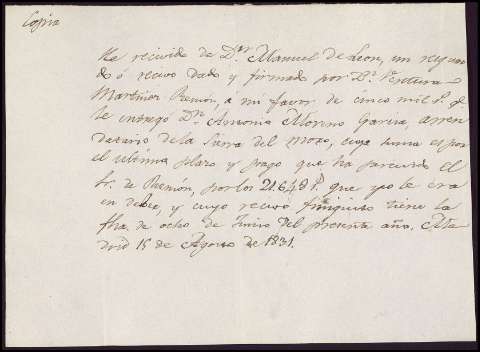 Copia
He recivido de Dn. Manuel de Leon, un resguar
do ó recivo dado y firmado por Dn. Ventura
Martinez Ramón, á mi favor de cinco mil rs. q.
le entregó Dn. Antonio Moreno Garcia, arren
datario de la Sierra del Moxo, cuya suma es por
el ultimo plazo y pago que ha parecido el
Sr. de Ramón, por los 21.648 rs. que yo le era
en deber, y cuyo recivo finiquito tiene la
fha. de ocho de Junio del presente año. Ma
drid 15 de Agosto de 1831.